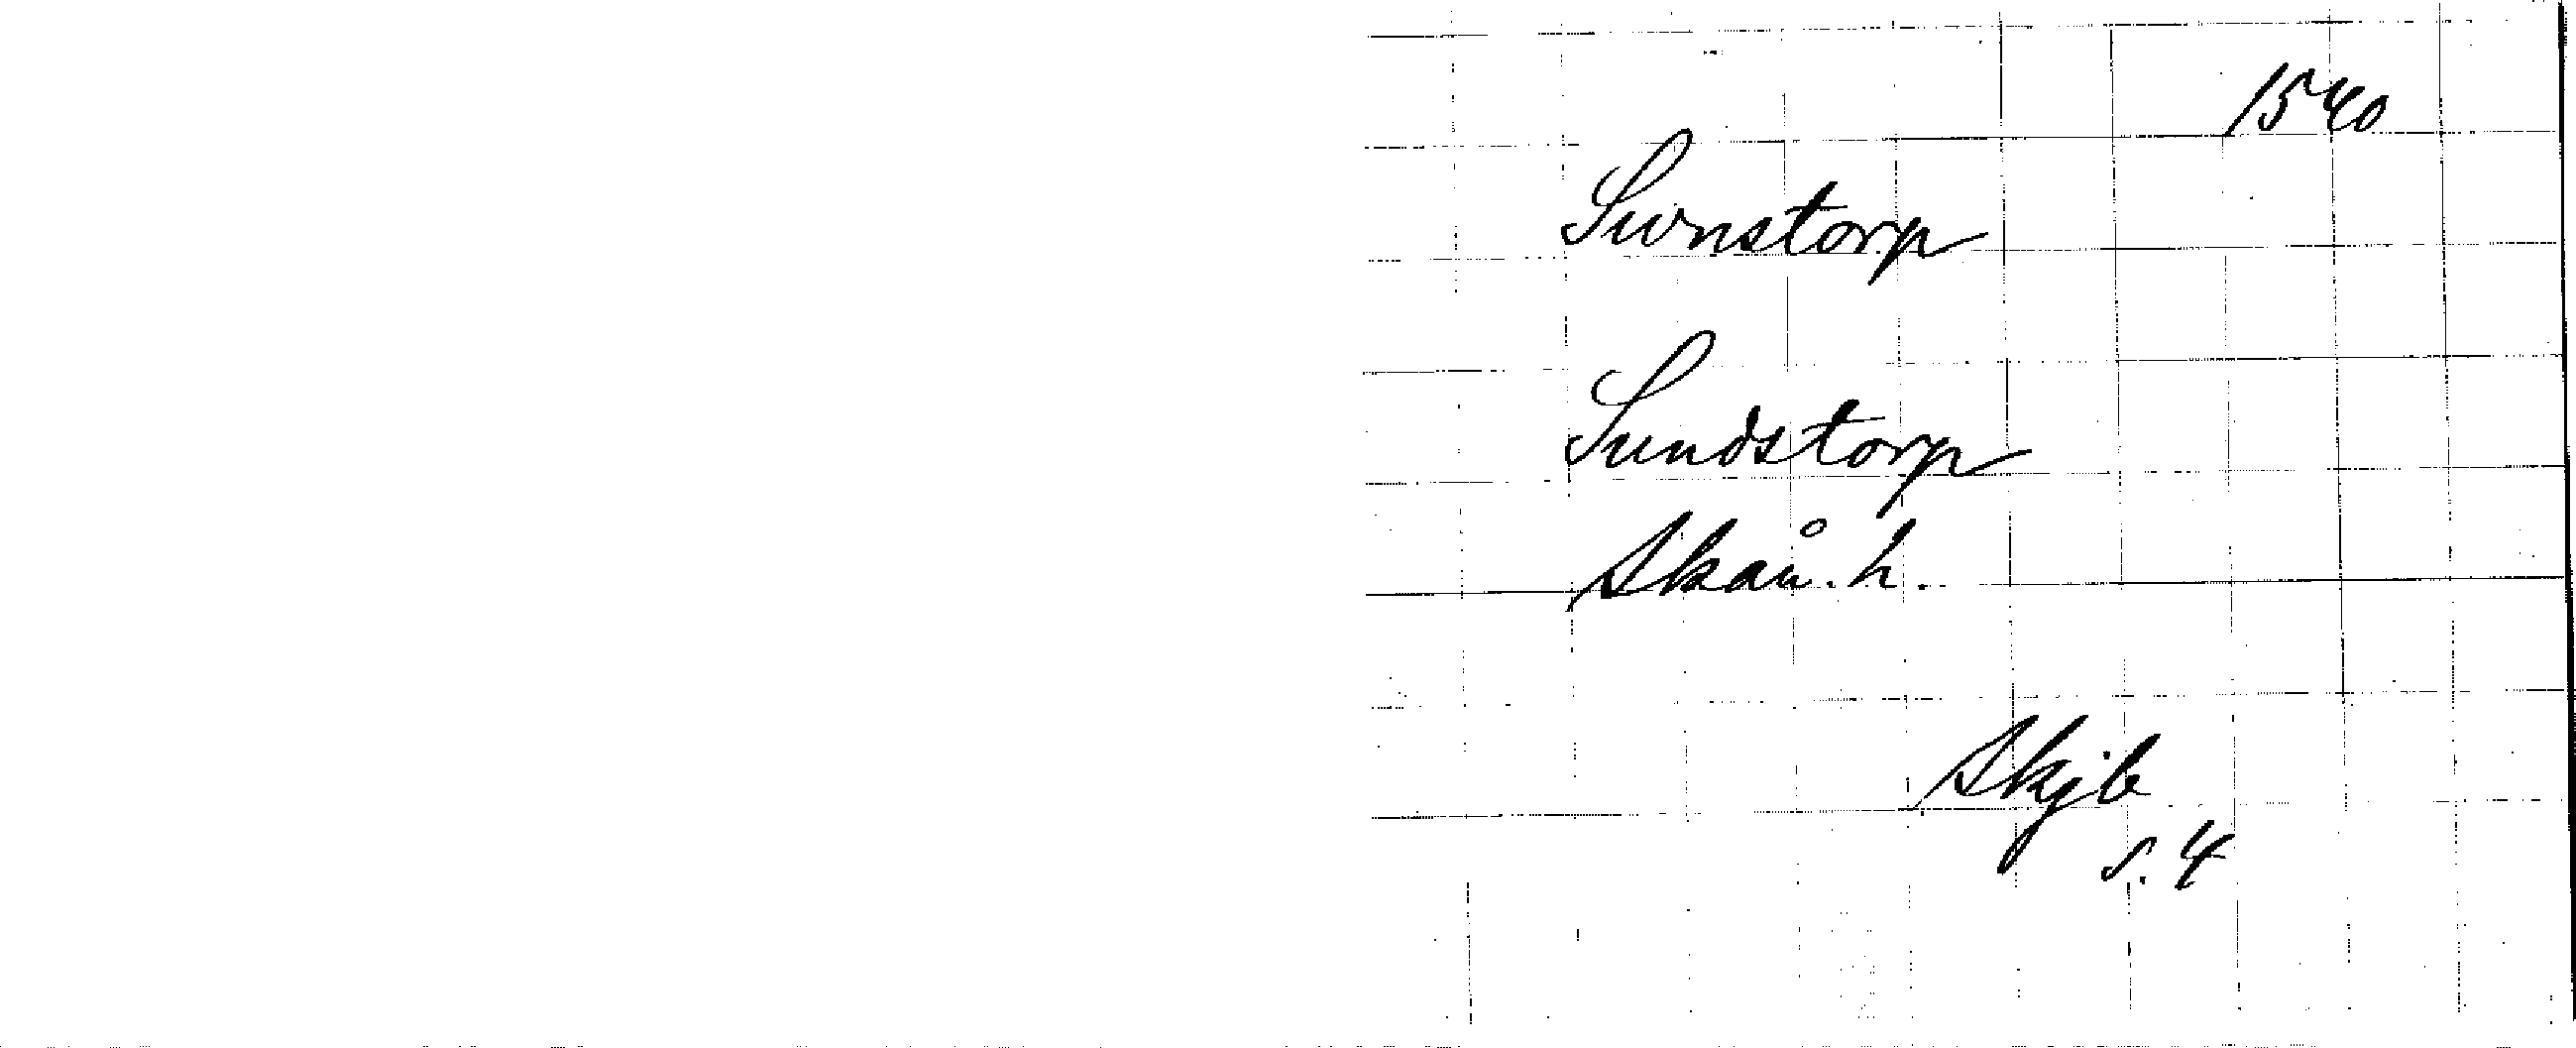 1540
Swnstorp
Sundstorp
Skån. h.
Skjb
s. 4